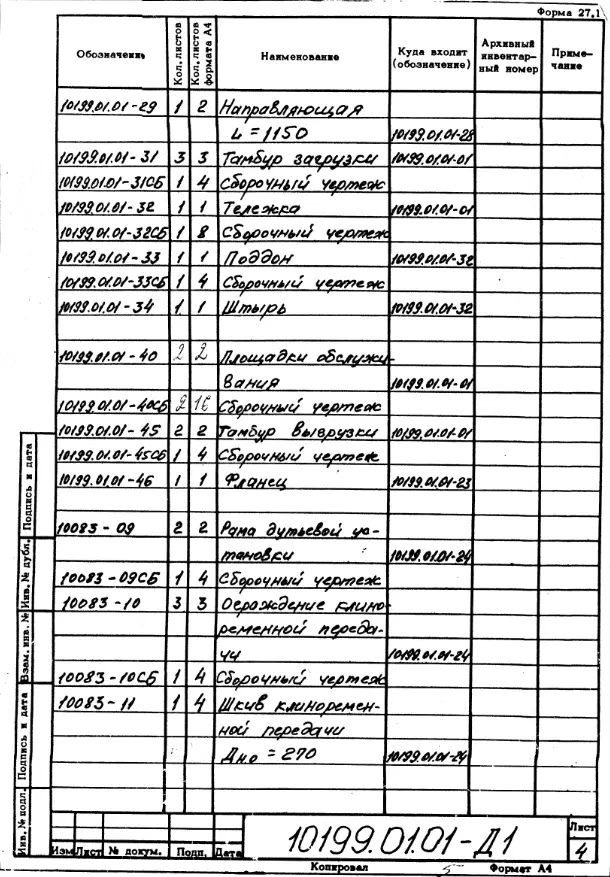 Форма 27,1
Обозначение Кол. листов Кол. листов формата А4 Наименование Куда входит (обозначение) Архивный инвентарный номер Примечание
10199.01.01-29 1 2 Направляющая
L=1150 10199.01.01-28
10199.01.01-31 3 3 Тамбур загрузки 10199.01.01-01
10199.01.01-31СБ 1 4 Сборочный чертеж
10199.01.01-32 1 1 Тележка 10199.01.01-01
10199.01.01-32СБ 1 8 Сборочный чертеж
10199.01.01-33 1 1 Поддон 10199.01.01-32
10199.01.01-33СБ 1 4 Сборочный чертеж
10199.01.01-34 1 1 Штырь 10199.01.01-32
10199.01.01-40 2 2 Площадки обслужи-
вания 10199.01.01-01
10199.01.01-40СБ 2 16 Сборочный чертеж
10199.01.01-45 2 2 Тамбур выгрузки 10199.01.01-01
10199.01.01-45СБ 1 4 Сборочный чертеж
10199.01.01-46 1 1 Фланец 10199.01.01-23
10083-09 2 2 Рама дутьевой ус-
тановки 10199.01.01-24
10083-09СБ 1 4 Сборочный чертеж
10083-10 3 3 Ограждение клино-
ременной переда-
чи 10199.01.01-24
10083-10СБ 1 4 Сборочный чертеж
10083-11 1 4 Шкив клиноремен-
ной передачи
Дно = 270 10199.01.01-24
Инв. № подл. Подпись и дата Взам. инв. № Инв. № дубл. Подпись и дата
Изм Лист № докум. Подп. Дата
10199.01.01-Д1
Лист
4
Копировал 5 Формат А4